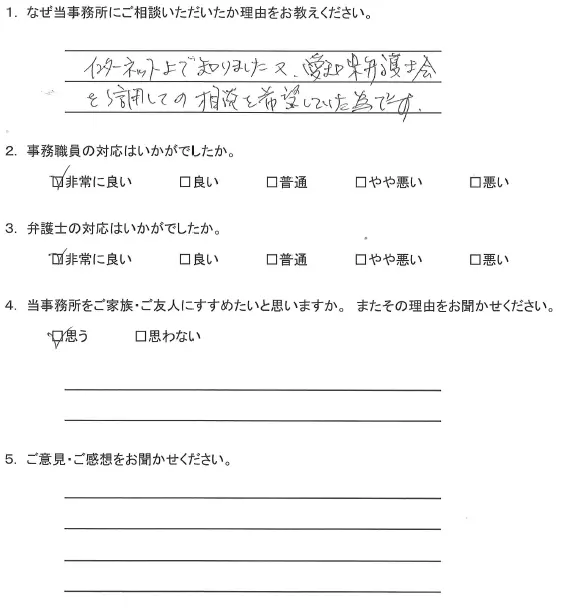 1. なぜ当事務所にご相談いただいたか理由をお教えください。
インターネット上で知りました又、愛知県弁護士会
を信用しての相談を希望していた為です.
2. 事務職員の対応はいかがでしたか。
☑非常に良い □良い □普通 □やや悪い □悪い
3. 弁護士の対応はいかがでしたか。
☑非常に良い □良い □普通 □やや悪い □悪い
4. 当事務所をご家族・ご友人にすすめたいと思いますか。 またその理由をお聞かせください。
☑思う □思わない
5. ご意見・ご感想をお聞かせください。